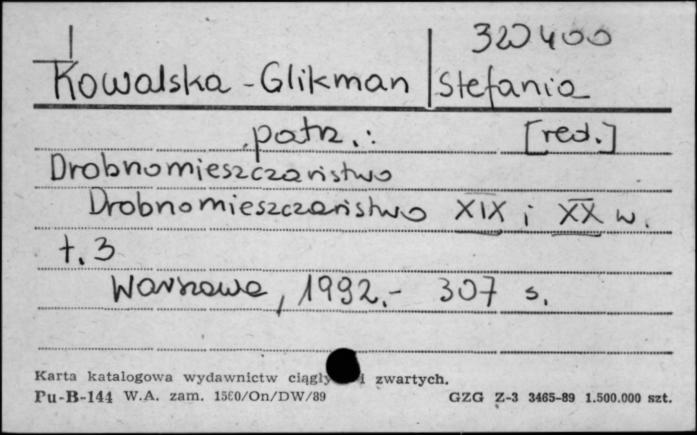 320400
Kowalska - Glikman Stefania
patrz.: [red.]
Drobnomieszczaństwo
Drobnomieszczaństwo XIX i XX w.
t. 3
Warszawa, 1992.- 307 s.
Karta katalogowa wydawnictw ciągły i zwartych.
Pu-B-144 W.A. zam. 1560/On/DW/89 GZG Z-3 3465-89 1.500.000 szt.